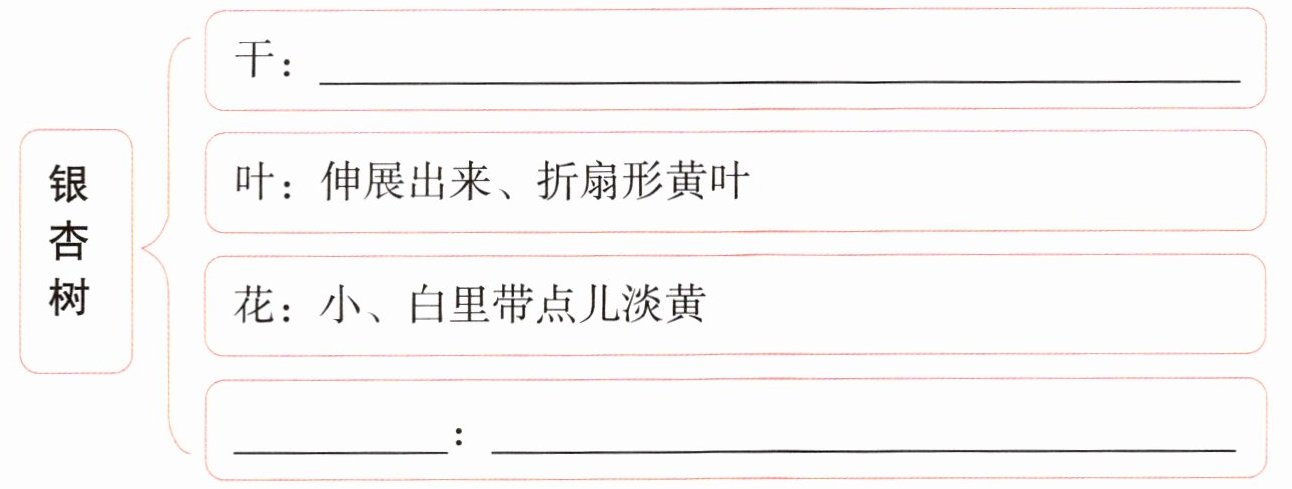 银杏树
干：
叶：伸展出来、折扇形黄叶
花：小、白里带点儿淡黄
：